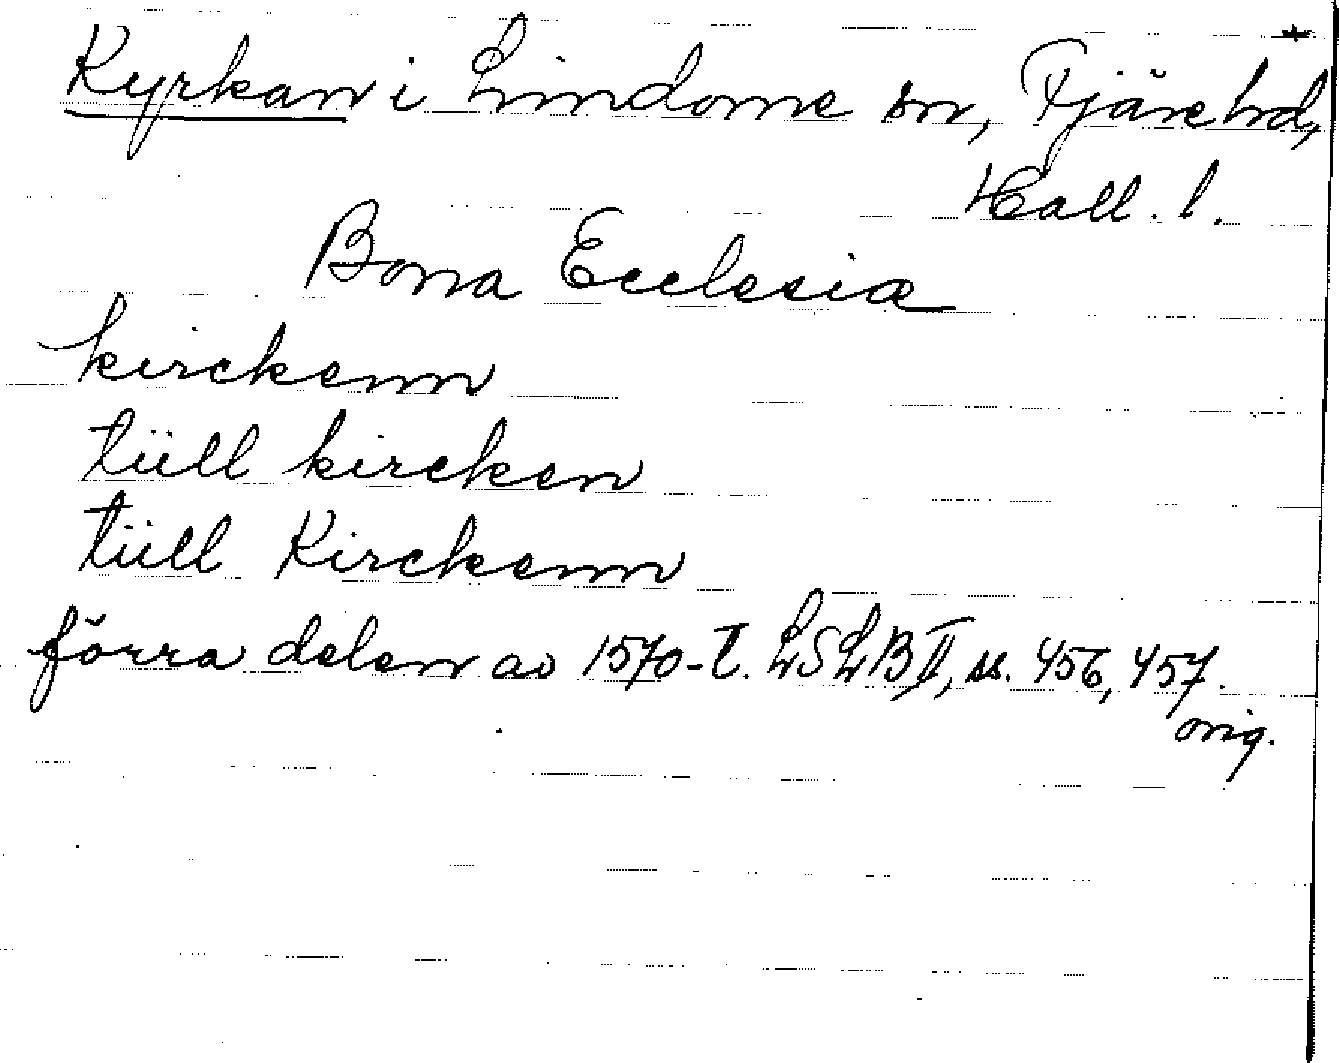 Kyrkan i Lindome sn, Fjäre hd,
Hall. l.
Bona Ecclesiæ
kirckenn
tüll kircken
tüll Kirckenn
förra delen av 1570-t. LSLB II, ss. 456, 457.
orig.